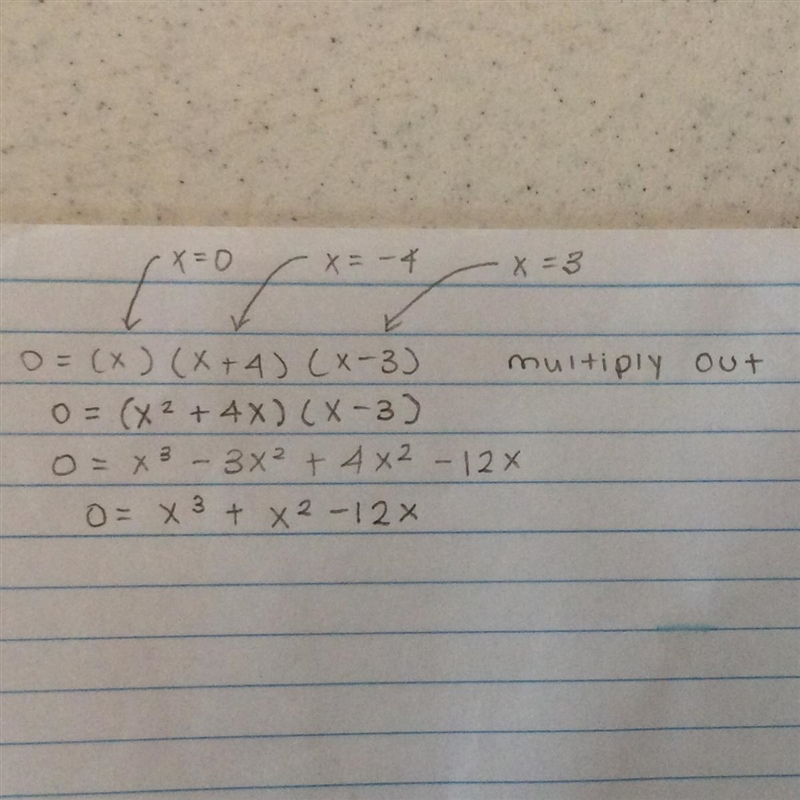 x=0 x = -4 x = 3
0 = (x) (x+4) (x-3) multiply out
0 = (x² + 4x) (x-3)
0 = x³ - 3x² + 4x² - 12x
0 = x³ + x² - 12x